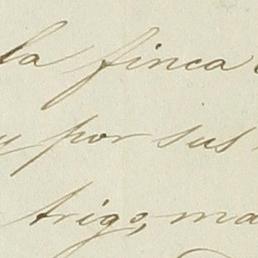 la finca
y por sus
trigo, ma